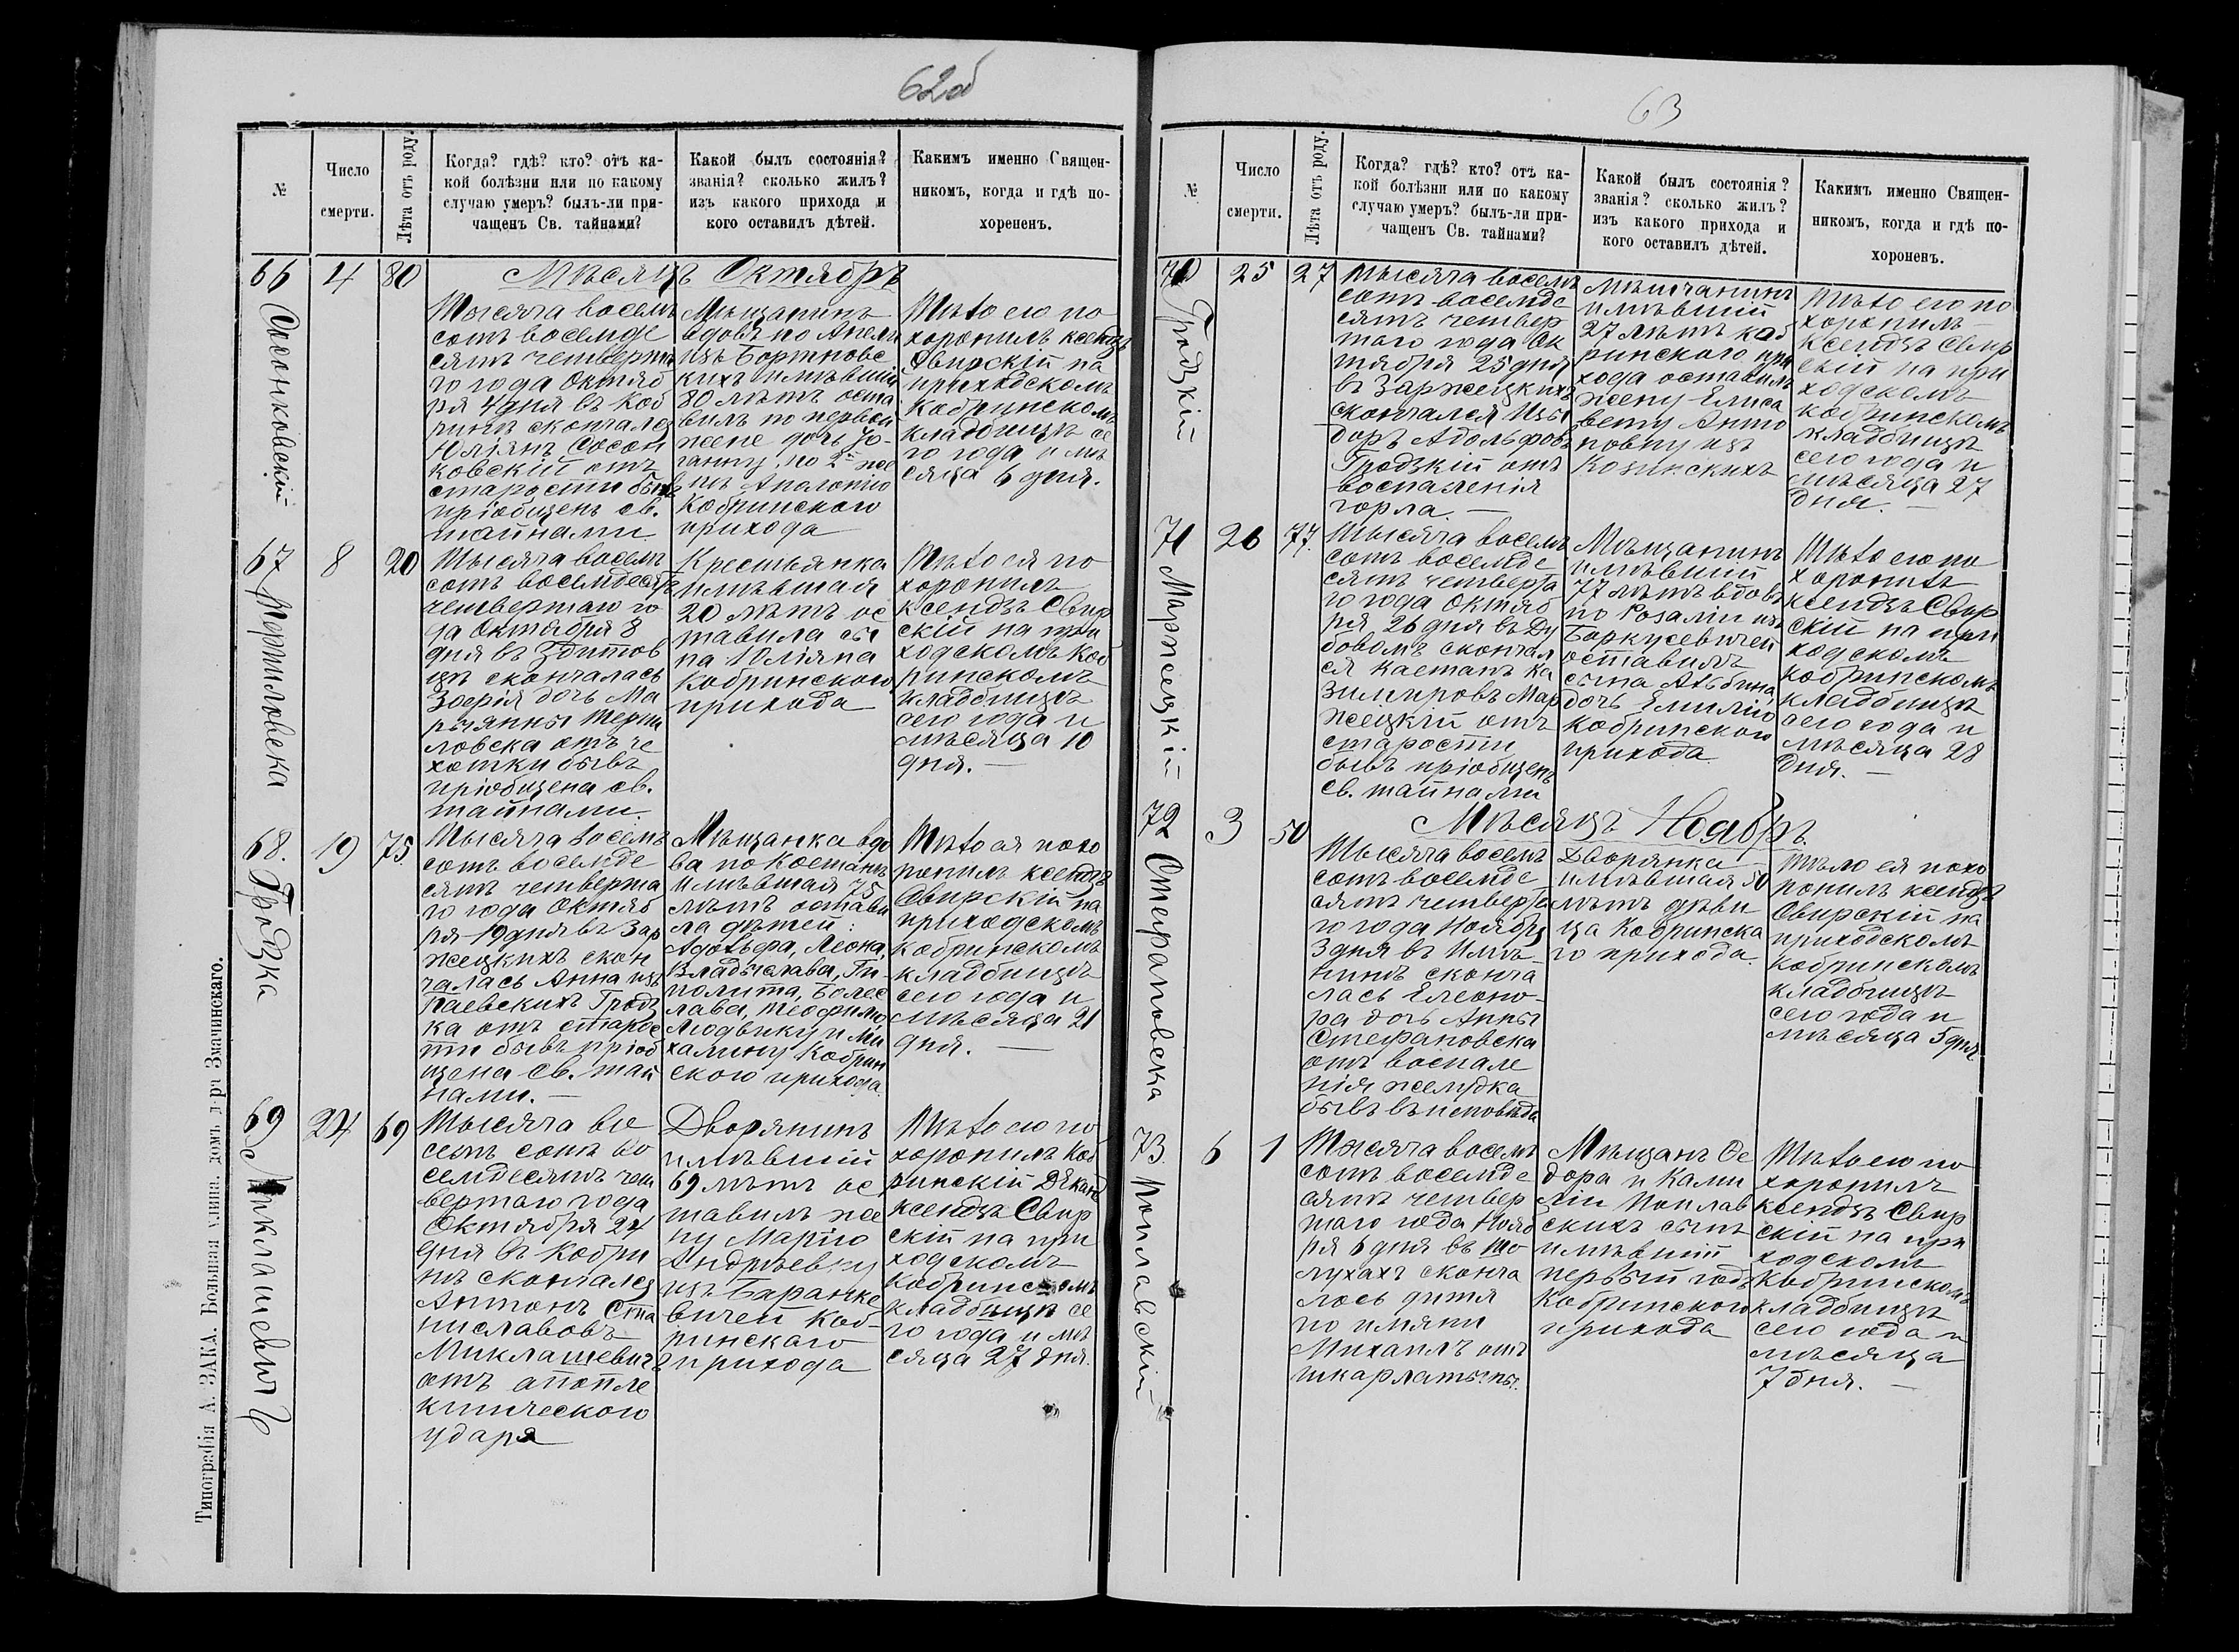 62об
№
Число
смерти.
Лѣта отъ роду.
Когда? гдѣ? кто? отъ ка-
кой болѣзни или по какому
случаю умеръ? былъ-ли при-
чащенъ Св. тайнами?
Какой былъ состоянія?
званія? сколько жилъ?
изъ какого прихода и
кого оставилъ дѣтей.
Какимъ именно Священ-
никомъ, когда и гдѣ по-
хороненъ.
Мѣсяцъ Октябрь
66
Сосонковскій
4
80
Тысяча восемь
сотъ восемьде
сятъ четверта
го года Октяб
ря 4 дня въ Коб
ринѣ скончался
Юліянъ Сосон
ковскій отъ
старости бывъ
пріобщенъ св.
тайнами
Мѣщанинъ
вдовъ по Анелѣ
изъ Бортновс
кихъ имѣвшій
80 лѣтъ оста
вилъ по первой
жене дочь Іо-
ганну, по 2й же
нѣ Аполонію
Кобринского
прихода
Тѣло его по
хоронилъ ксендзъ
Свирскій на
приходскомъ
Кобринскомъ
кладбищѣ се
го года и мѣ
сяца 6 дня.
67
Терпиловска
8
20
Тысяча восемь
сотъ восемдесятъ
четвертаго го
да Октября 8
дня въ Здитов
цѣ скончалась
Зоерія дочь Ма
рьянны Терпи
ловска отъ че
хотки бывъ
пріобщена св.
тайнами.
Крестьянка
имѣвшая
20 лѣтъ ос
тавила сы
на Юліяна
Кобринского
прихода
Тѣло ея по
хоронилъ
ксендзъ Свир
скій на при
ходскомъ Коб
ринскомъ
кладбищѣ
сего года и
мѣсяца 10
дня.
68.
Гродзка
19
75
Тысяча восемь
сотъ восемде
сятъ четверта
го года Октяб
ря 19 дня въ Зар
жецкихъ скон
чалась Анна изъ
Паевскихъ Гродз
ка отъ старос
ти бывъ пріоб
щена св. тай
нами.
Мѣщанка вдо
ва по Костанѣ
имѣвшая 75
лѣтъ остави
ла дѣтей:
Адольфа, Леона,
Владыслава, Ги-
полита, Болес
лава, Теофилю
Людвику и Ми
халину Кобрин
ского прихода.
Тѣло ея похо
ронилъ ксендзъ
Свирскій на
приходскомъ
Кобринскомъ
кладбищѣ
сего года и
мѣсяца 21
дня.
69
Миклашевичъ
24
69
Тысяча во
семь сотъ во
семдесятъ чет
вертаго года
Октября 24
дня въ Кобри
нѣ скончался
Антонъ Ста
ниславовъ
Миклашевичъ
отъ апопле
ктического
удара
Дворянинъ
имѣвшій
69 лѣтъ ос
тавилъ же
ну Марію
Андреевну
изъ Баранке
вичей Коб-
ринскаго
прихода
Тѣло его по
хоронилъ Коб
ринскій Декан
ксендзъ Свир
скій на при
ходскомъ
Кобринскомъ
кладбищѣ се
го года и мѣ
сяца 27 дня.
Типографія А. ЗАКА. Большая улица. домъ д-ра Змачинскаго.
63
№
Число
смерти.
Лѣта отъ роду.
Когда? гдѣ? кто? отъ ка-
кой болѣзни или по какому
случаю умеръ? былъ-ли при-
чащенъ Св. тайнами?
Какой былъ состоянія?
званія? сколько жилъ?
изъ какого прихода и
кого оставилъ дѣтей.
Какимъ именно Священ-
никомъ, когда и гдѣ по-
хороненъ.
70
Гродзкій
25
27
Тысяча восемь
сотъ восемде
сятъ четвер
таго года Ок
тября 25 дня
въ Заржецкихъ
скончался Изы
доръ Адольфовъ
Гродзкій отъ
воспаленія
горла.
Мѣщанинъ
имѣвшій
27 лѣтъ Коб
ринского при
хода оставилъ
жену Елиса
вету Анто
новну изъ
Козинскихъ
Тѣло его по
хоронилъ
ксендзъ Свир
скій на при
ходскомъ
кобринскомъ
кладбищѣ
сего года и
мѣсяца 27
дня.
71
Маржецкій
26
77.
Тысяча восемь
сотъ восемде
сятъ четверта
го года Октяб
ря 26 дня въ Ду
бовомъ скончал
ся Каетанъ Ка
зимировъ Мар
жецкій отъ
старости
бывъ пріобщенъ
св. тайнами
Мѣщанинъ
имѣвшій
77 лѣтъ вдовъ
по Розаліи изъ
Боркусевичей
оставилъ
сына Альбина,
дочь Емилію
Кобринского
прихода
Тѣло его по
хоронилъ
ксендзъ Свир
скій на при
ходскомъ
кобринскомъ
кладбищѣ
сего года и
мѣсяца 28
дня.
Мѣсяцъ Ноябрь.
72
Стефановска
3
50
Тысяча восемь
сотъ восемде
сятъ четверта
го года Ноября
3 дня въ Имѣ-
нинѣ сконча
лась Елеоно-
ра дочь Анны
Стефановска
отъ воспале
нія желудка
бывъ въ исповѣда
Дворянка
имѣвшая 50
лѣтъ дѣви
ца Кобринска
го прихода.
Тѣло ея похо
ронилъ ксендзъ
Свирскій на
приходскомъ
Кобринскомъ
кладбищѣ
сего года и
мѣсяца 5 дня
73.
Поплавскій
6
1
Тысяча восемь
сотъ восемде
сятъ четвер
таго года Нояб
ря 6 дня въ Шо
лухахъ сконча
лось дитя
по имяни
Михаилъ отъ
шкарлатыны.
Мѣщанъ Ѳе
дора и Ками
ліи Поплав
скихъ сынъ
имѣвшій
первый годъ
Кобринского
прихода
Тѣло его по
хоронилъ
ксендзъ Свир
скій на при
ходскомъ
Кобринскомъ
кладбищѣ
сего года и
мѣсяца
7 дня.